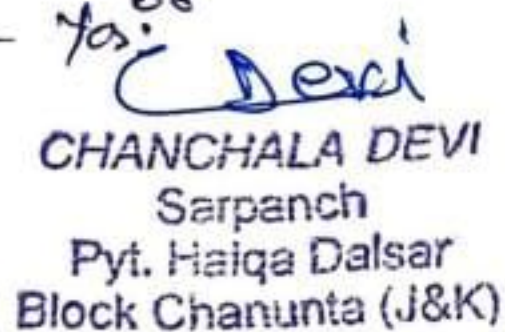 Yas:
C Devi
CHANCHALA DEVI
Sarpanch
Pyt. Haiqa Dalsar
Block Chanunta (J&K)